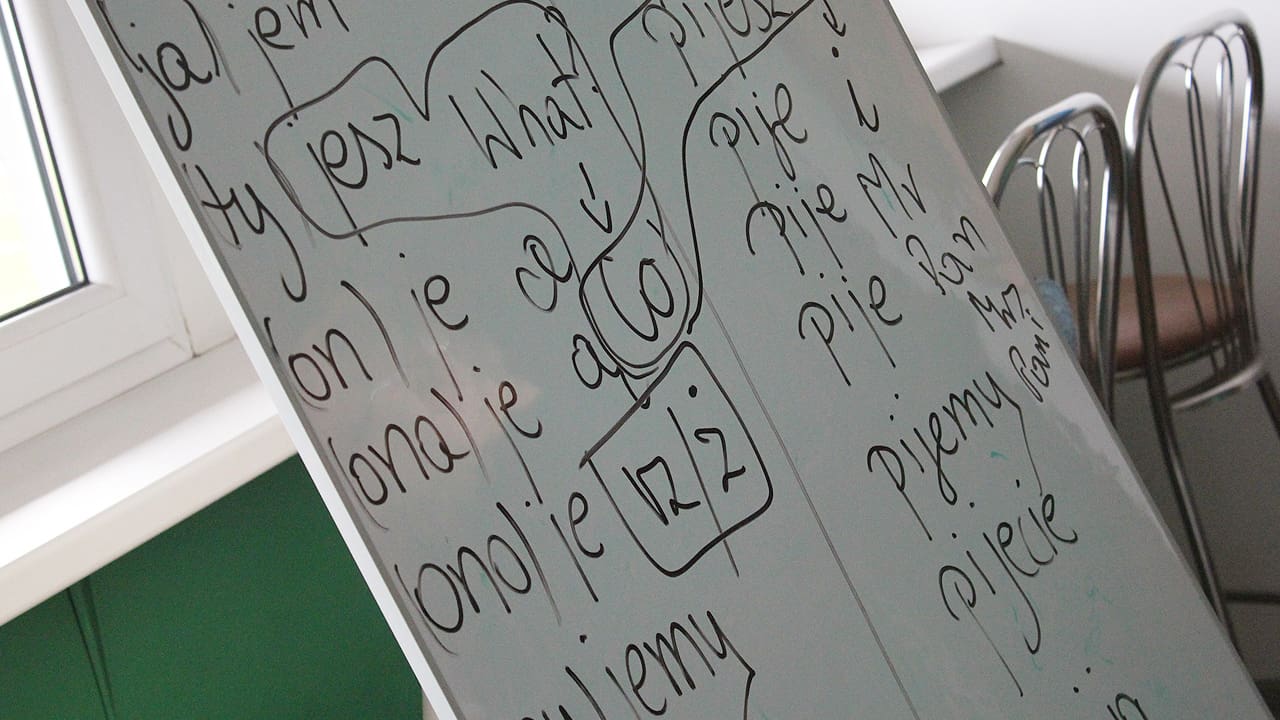 (ja) jem
(ty jesz What?
(on) je
(ona) je
(ono) je
jemy
co
rz / ż
pijesz
pije i
pije Mr Pan
pije Mrs Pani
pijemy
pijecie